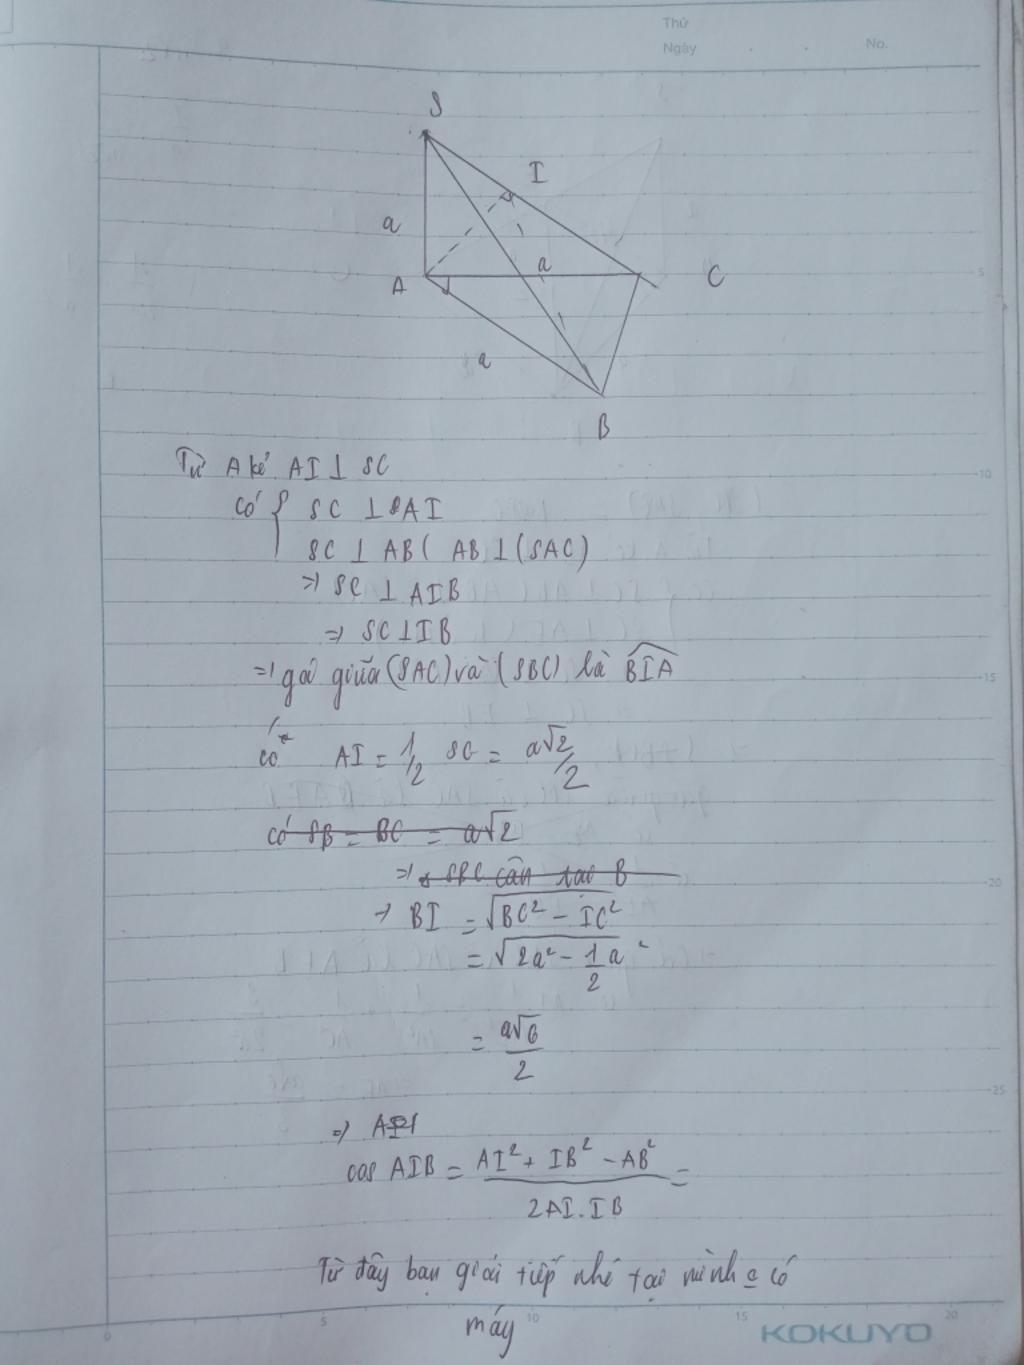 Thứ
Ngày . . No.
S
I
a
a
A
C
a
B
Từ A kẻ AI ⊥ SC
có { SC ⊥ AI
SC ⊥ AB ( AB ⊥ (SAC)
=> SC ⊥ AIB
=> SC ⊥ IB
=> góc giữa (SAC) và (SBC) là BIA
có AI = 1/2 SC = a√2/2
có SB = BC = a√2
=> SBC cân tại B
→ BI = √BC² - IC²
= √2a² - 1/2 a²
= a√6/2
=>
cos AIB = AI² + IB² - AB² / 2AI.IB =
Từ đây bạn giải tiếp nhé tại mình có
máy
5
10
15
20
25
0
5
10
15
20
KOKUYO